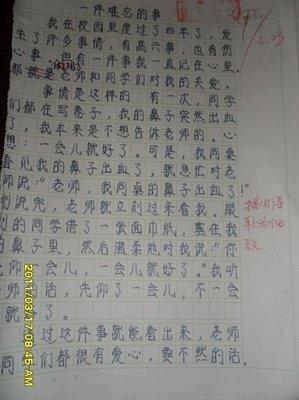 一件难忘的事
我在校园里度过了四年了，发
生了许多事情，有高兴事，也有伤
心事，但有一件事我一直记在心里。
那就是老师和同学们对我的关爱。
事情是这样的：有一次，同学
们都在写卷子，我的鼻子突然出血
了，我本来是不想告诉老师的。心
想：一会儿就好了。可是，我同桌
看见我的鼻子出血了，就急忙对老
师说：“老师，我同桌的鼻子出血了！”
刚说完，老师就立刻过来看我。跟
的同学借了一张面巾纸，塞在我
的鼻子里，然后温柔地对我说“你
先仰一会儿，一会儿就好了。”我听
师的话，先仰了一会儿，不一会
就
了。
过这件事就能看出来，老师
同
们都很有爱心，要不然的话，
描写得
较为细
致
3.23
2011/03/17 08:45 AM